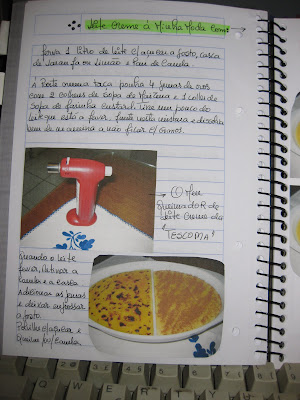 Leite Creme à Minha Moda
Ferva 1 litro de leite c/ açucar a gosto, casca
de laranja ou limão e Pau de Canela.
À Parte numa taça ponha 4 gemas de ovos
com 2 colheres de sopa de Maizena e 1 colher de
sopa de farinha custard. Tire um pouco do
leite que está a ferver, junte nesta mistura e dissolva
bem de maneira a não ficar c/ Grumos.
O Meu
Queimador de
Leite Creme da
"TESCOMA"
Quando o leite
ferver, retirar a
Canela e a casca
Adicionar as gemas
e deixar engrossar
a gosto.
Polvilhe c/ açucar e
Queime ou c/ Canela.
Q W E R T Y